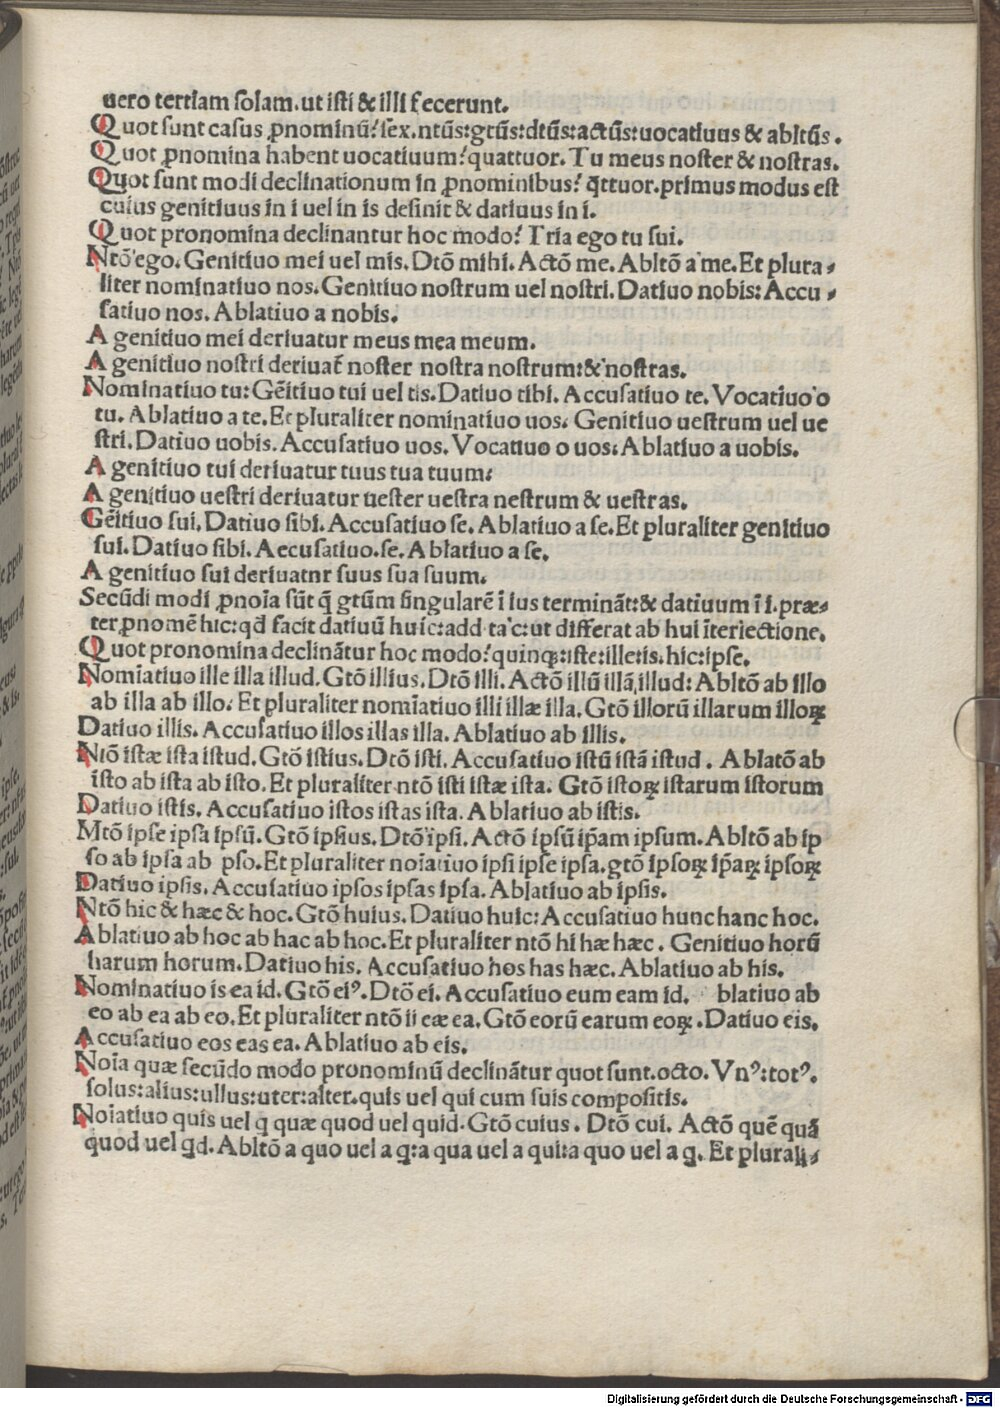 uero tertiam ſolam. ut iſti & illi fecerunt.
Quot ſunt caſus ꝓnominū? ſex. ntūs: gtūs: dtūs: actūs: uocatiuus & abltūs.
Quot ꝓnomina habent uocatiuum? quattuor. Tu meus noſter & noſtras.
Quot ſunt modi declinationum in ꝓnominibus? q̄ttuor. primus modus eſt
cuius genitiuus in i uel in is definit & datiuus in i.
Quot pronomina declinantur hoc modo? Tria ego tu ſui.
Ntō ego. Genitiuo mei uel mis. Dtō mihi. Actō me. Abltō a me. Et plura⸗
liter nominatiuo nos. Genitiuo noſtrum uel noſtri. Datiuo nobis: Accu⸗
ſatiuo nos. Ablatiuo a nobis.
A genitiuo mei deriuatur meus mea meum.
A genitiuo noſtri deriuat̄ noſter noſtra noſtrum: & noſtras.
Nominatiuo tu: Gēitiuo tui uel tis. Datiuo tibi. Accuſatiuo te. Vocatiuo o
tu. Ablatiuo a te. Et pluraliter nominatiuo uos. Genitiuo ueſtrum uel ue
ſtri. Datiuo uobis. Accuſatiuo uos. Vocatiuo o uos: Ablatiuo a uobis.
A genitiuo tui deriuatur tuus tua tuum:
A genitiuo ueſtri deriuatur ueſter ueſtra neſtrum & ueſtras.
Gēitiuo ſui. Datiuo ſibi. Accuſatiuo ſe. Ablatiuo a ſe. Et pluraliter genitiuo
ſui. Datiuo ſibi. Aecuſatiuo. ſe. Ablatiuo a ſe.
A genitiuo ſui deriuatnr ſuus ſua ſuum.
Secūdi modi ꝓnoīa ſūt q̄ gtūm ſingularē ī ius termināt: & datiuum ī i. præ⸗
ter ꝓnomē hic: qd facit datiuū huic: add ta c: ut differat ab hui īteriectione.
Quot pronomina declinātur hoc modo? quinqꝫ: iſte: ille: is. hic: ipſe.
Nomīatiuo ille illa illud. Gtō illius. Dtō illi. Actō illū illā, illud: Abltō ab illo
ab illa ab illo. Et pluraliter nomīatiuo illi illæ illa. Gtō illorū illarum illoꝝ
Datiuo illis. Accuſatiuo illos illas illa. Ablatiuo ab illis.
Ntō iſtæ iſta iſtud. Gtō iſtius. Dtō iſti. Accuſatiuo iſtū iſtā iſtud. Ablatō ab
iſto ab iſta ab iſto. Et pluraliter ntō iſti iſtæ iſta. Gtō iſtoꝝ iſtarum iſtorum
Datiuo iſtis. Accuſatiuo iſtos iſtas iſta. Ablatiuo ab iſtis.
Mtō ipſe ipſa ipſū. Gtō ipſius. Dtō ipſi. Actō ipſū ip̄am ipſum. Abltō ab ip
ſo ab ipſa ab pſo. Et pluraliter noīatiuo ipſi ipſe ipſa. gtō ipſoꝝ ip̄aꝝ ipſoꝝ
Datiuo ipſis. Accuſatiuo ipſos ipſas ipſa. Ablatiuo ab ipſis.
Ntō hic & hæc & hoc. Gtō huius. Datiuo huic: Accuſatiuo hunc hanc hoc.
Ablatiuo ab hoc ab hac ab hoc. Et pluraliter ntō hi hæ hæc. Genitiuo horū
harum horum. Datiuo his. Accuſatiuo hos has hæc. Ablatiuo ab his.
Nominatiuo is ea id. Gtō eiꝰ. Dtō ei. Accuſatiuo eum eam id. blatiuo ab
eo ab ea ab eo. Et pluraliter ntō ii eæ ea. Gtō eorū earum eoꝝ. Datiuo eis.
Accuſatiuo eos eas ea. Ablatiuo ab eis.
Noīa quæ ſecūdo modo pronominū declinātur quot ſunt. octo. Vnꝰ: totꝰ.
ſolus: alius: ullus: uter: alter. quis uel qui cum ſuis compoſitis.
Noīatiuo quis uel q quæ quod uel quid. Gtō cuius. Dtō cui. Actō quē quā
quod uel qd. Abltō a quo uel a q: a qua uel a qui: a quo uel a q. Et plurali⸗
Digitalisierung gefördert durch die Deutsche Forschungsgemeinschaft - DFG